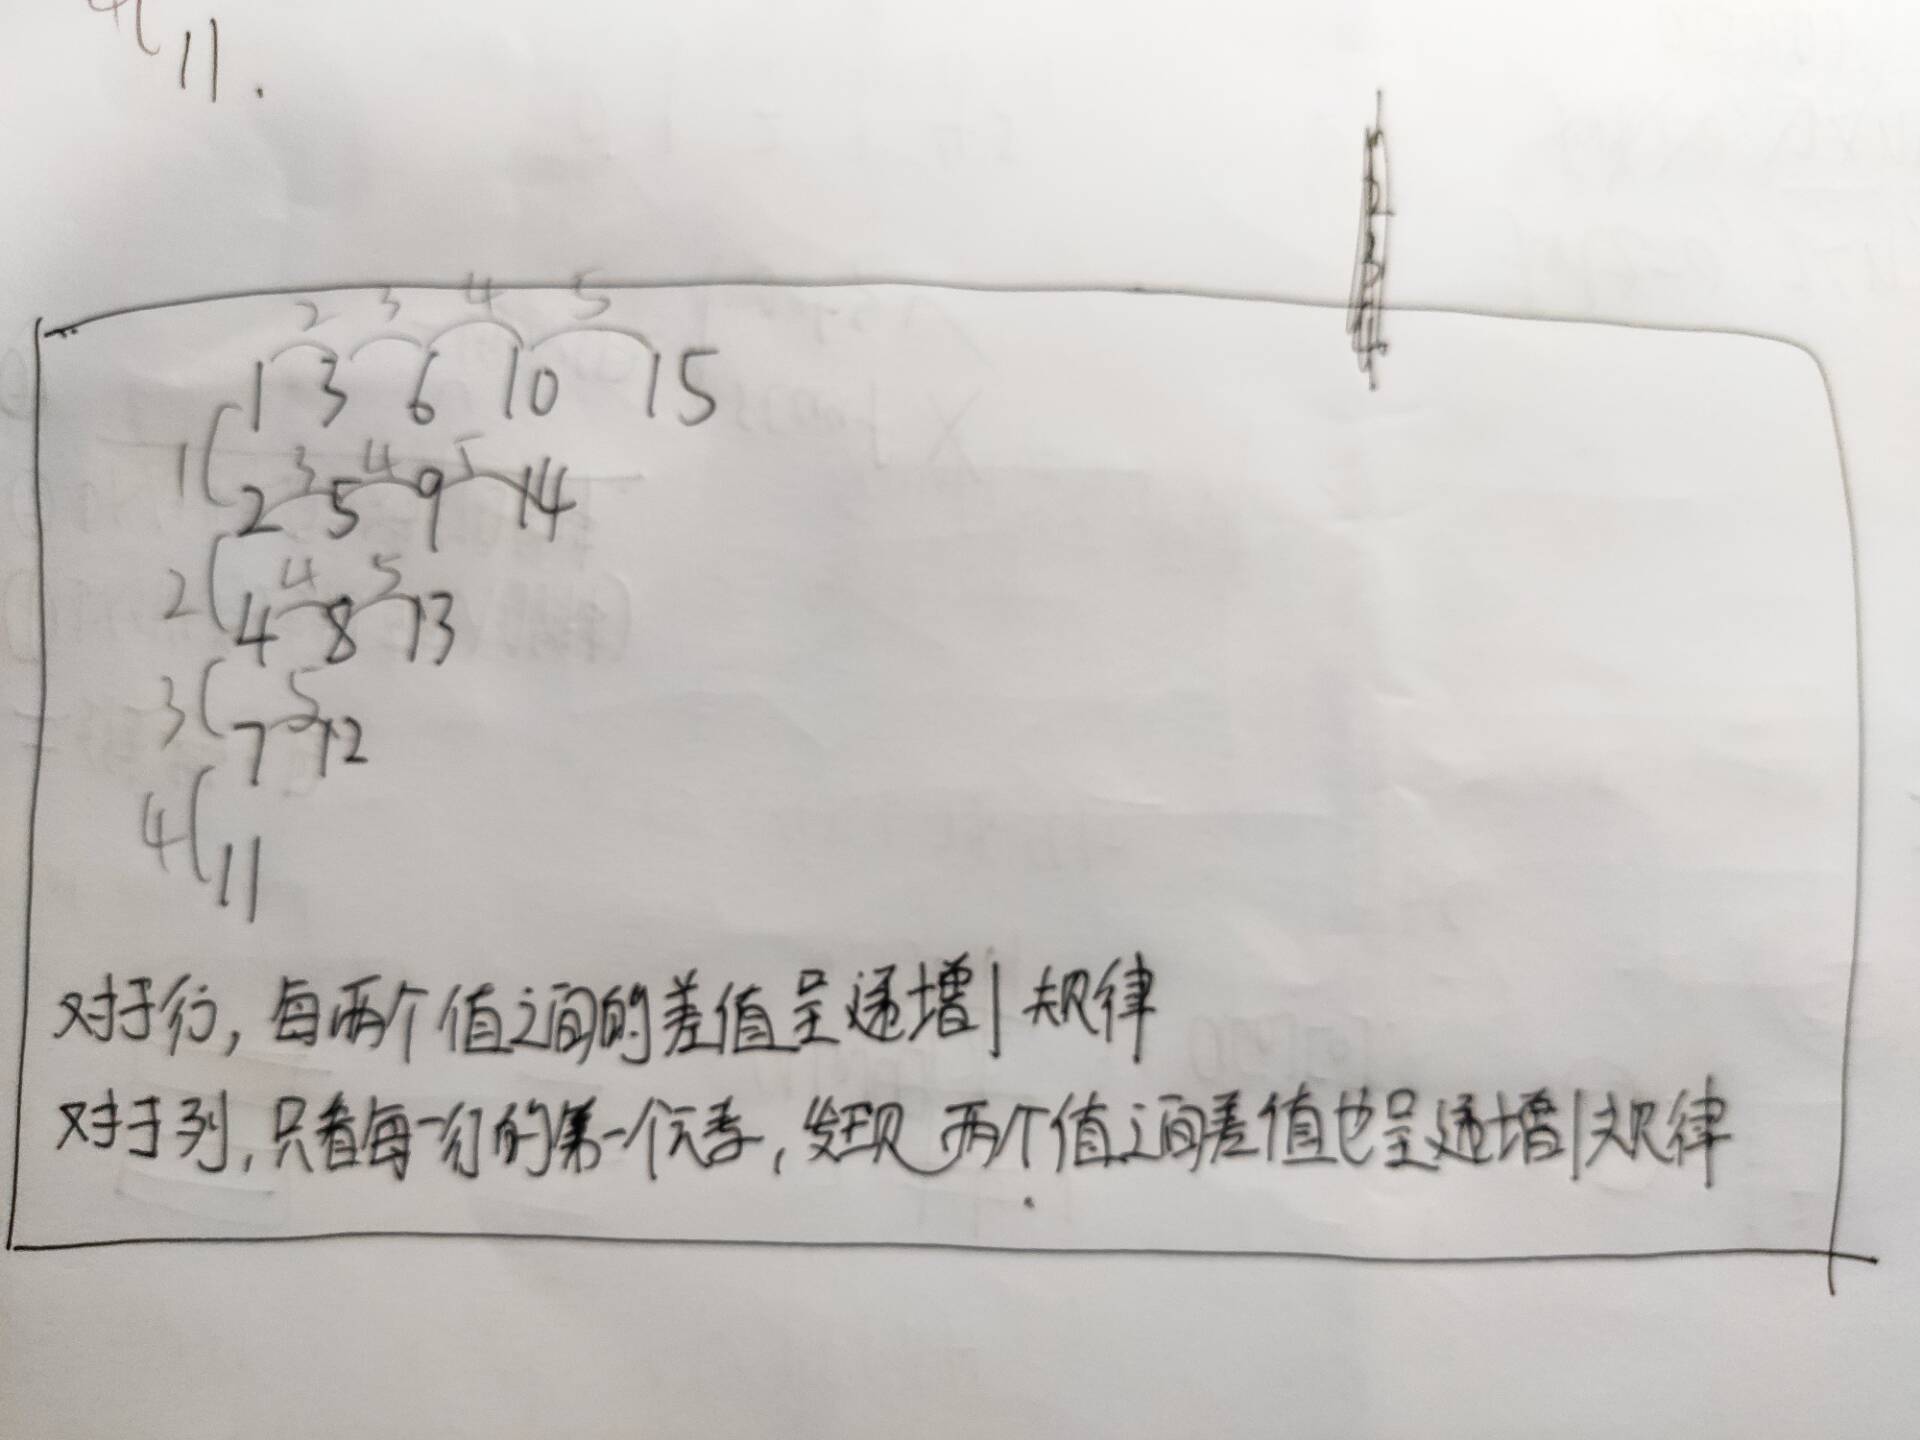 11.
2 3 4 5
1 3 6 10 15
1 3 4 5
2 5 9 14
2 4 5
4 8 13
3 5
7 12
4
11
对于行，每两个值之间的差值呈递增1规律
对于列，只看每一行的第一个元素，发现两个值之间差值也呈递增1规律